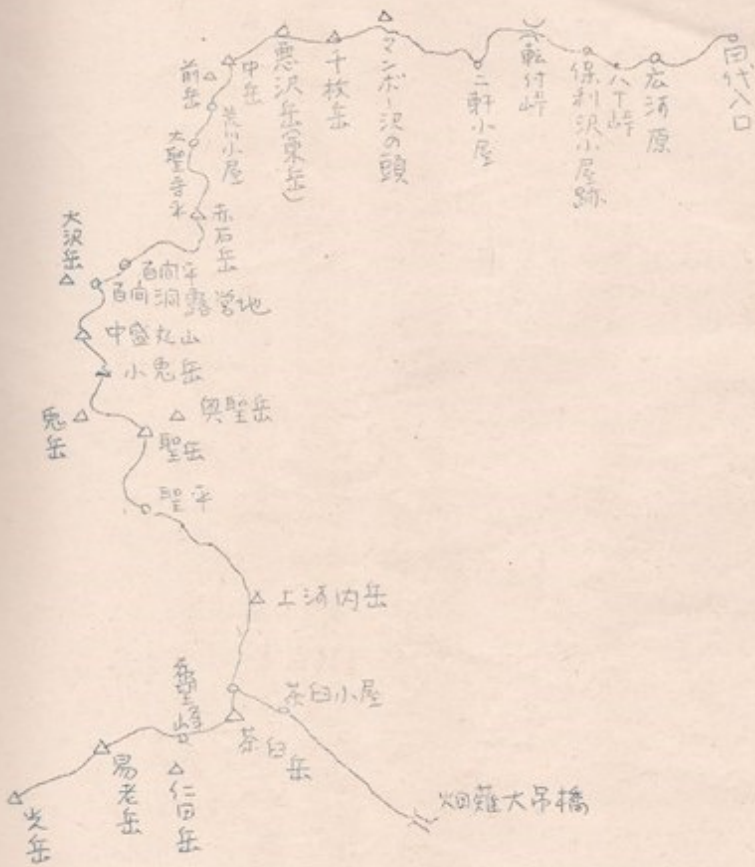 田代入口
広河原
八丁峠
保利沢小屋跡
転付峠
二軒小屋
マンボー沢の頭
千枚岳
悪沢岳(東岳)
中岳
前岳
荒川小屋
大聖寺平
赤石岳
百間平
大沢岳
百間洞露営地
中盛丸山
小兎岳
兎岳
奥聖岳
聖岳
聖平
上河内岳
茶臼小屋
茶臼岳
仁田岳
易老岳
光岳
畑薙大吊橋